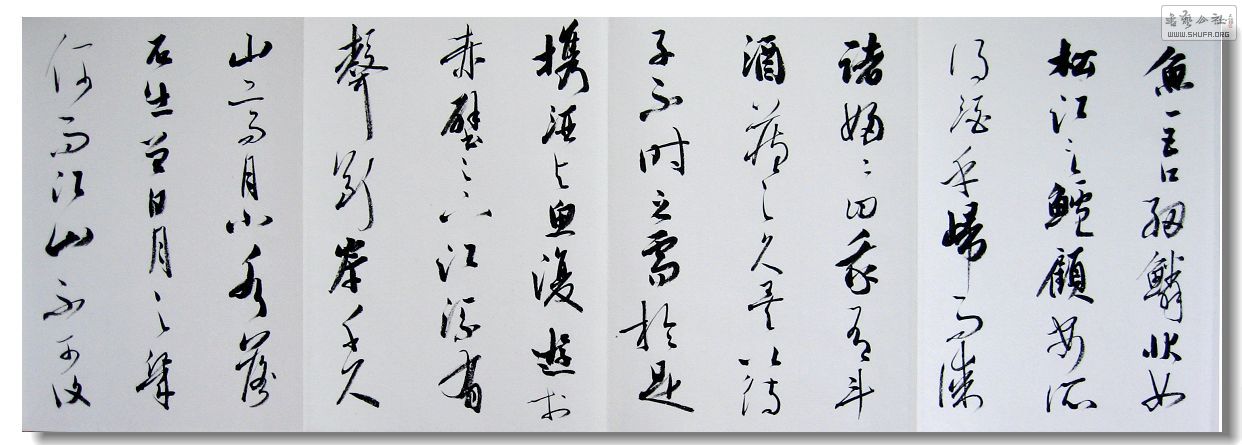 魚巨口細鱗狀如
松江之鱸顧安所
得酒乎歸而謀
諸婦〻曰我有斗
酒藏之久矣以待
子不時之需於是
攜酒與魚復遊於
赤壁之下江流有
聲斷岸千尺
山高月小水落
石出曾日月之幾
何而江山不可復
书艺公社
WWW.SHUFA.ORG